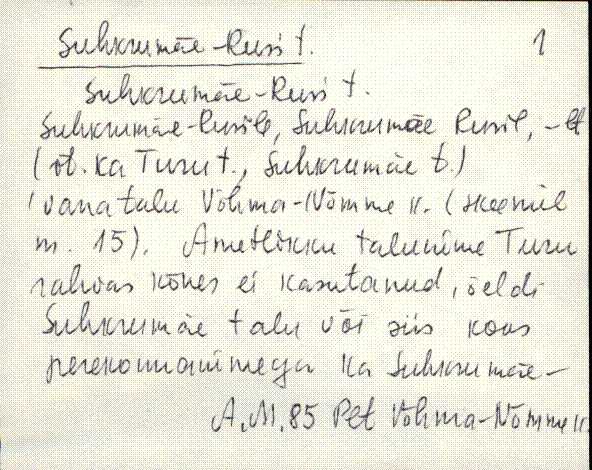 Suhkrumäe-Rusi t. 1
Suhkrumäe-Rusi t.
Suhkrumäe-Rusile, Suhkrumäe Rusil, -lt
(öt. ka Turu t., Suhkrumäe t.)
'vana talu Võhma-Nõmme k. (skeemil
nr. 15). Ametlikku talunime Turu
rahvas kõnes ei kasutanud, öeldi
Suhkrumäe talu või siis koos
perekonnanimega ka Suhkrumäe-
A.M. 85 Pct Võhma-Nõmme k.